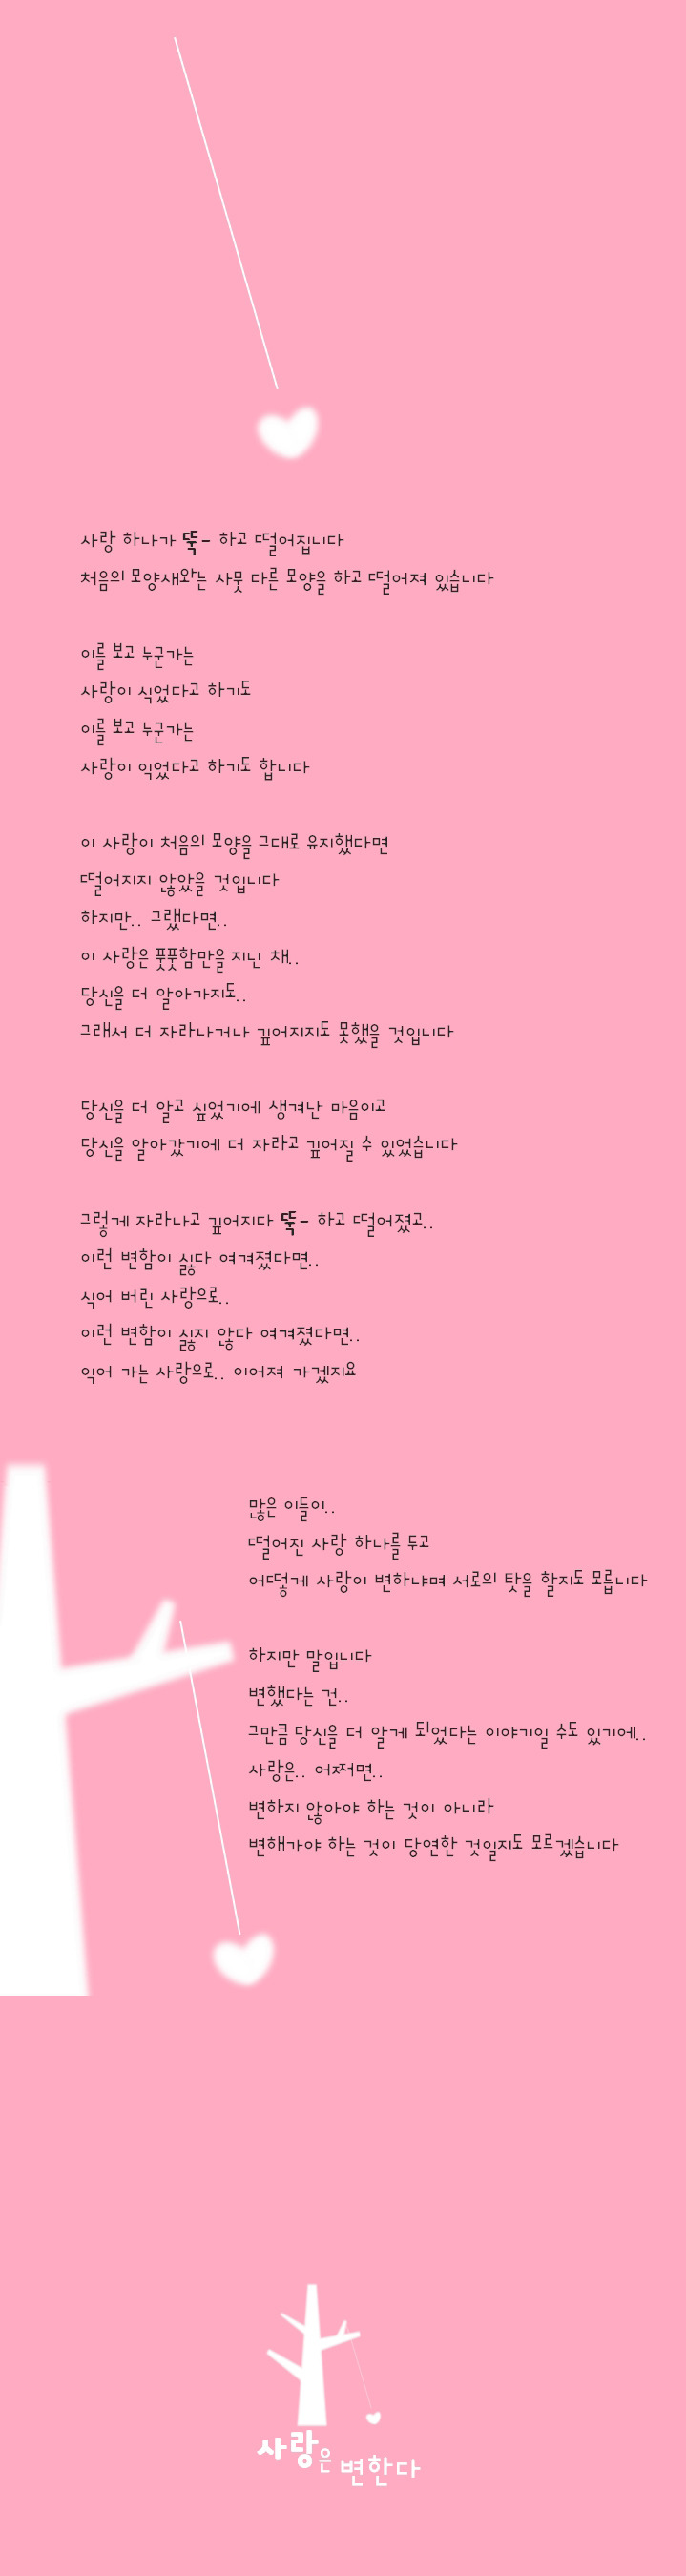 사랑 하나가 뚝- 하고 떨어집니다
처음의 모양새와는 사뭇 다른 모양을 하고 떨어져 있습니다
이를 보고 누군가는
사랑이 식었다고 하기도
이를 보고 누군가는
사랑이 익었다고 하기도 합니다
이 사랑이 처음의 모양을 그대로 유지했다면
떨어지지 않았을 것입니다
하지만.. 그랬다면..
이 사랑은 풋풋함만을 지닌 채..
당신을 더 알아가지도..
그래서 더 자라나거나 깊어지지도 못했을 것입니다
당신을 더 알고 싶었기에 생겨난 마음이고
당신을 알아갔기에 더 자라고 깊어질 수 있었습니다
그렇게 자라나고 깊어지다 뚝- 하고 떨어졌고..
이런 변함이 싫다 여겨졌다면..
식어 버린 사랑으로..
이런 변함이 싫지 않다 여겨졌다면..
익어 가는 사랑으로.. 이어져 가겠지요
많은 이들이..
떨어진 사랑 하나를 두고
어떻게 사랑이 변하냐며 서로의 탓을 할지도 모릅니다
하지만 말입니다
변했다는 건..
그만큼 당신을 더 알게 되었다는 이야기일 수도 있기에..
사랑은.. 어쩌면..
변하지 않아야 하는 것이 아니라
변해가야 하는 것이 당연한 것일지도 모르겠습니다
사랑은 변한다